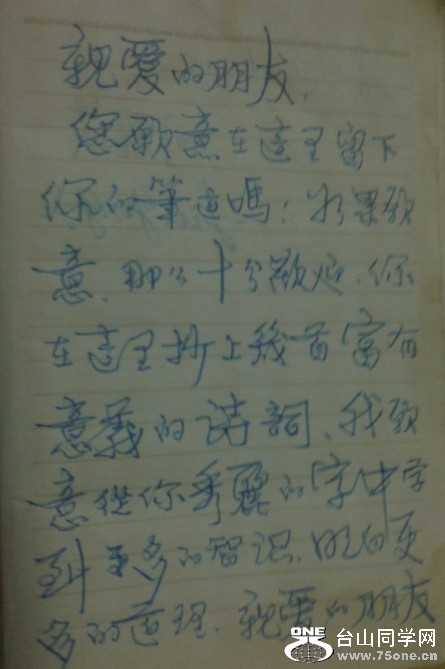 親愛的朋友，
您願意在這里留下
你的筆迹嗎！如果願
意、那么十分欢迎、你
在這里抄上幾首富有
意義的诗詞、我願
意從你秀麗的字中学
到更多的智识、明白更
多的道理、親愛的朋友
ONE 台山同学网
www.75one.cn